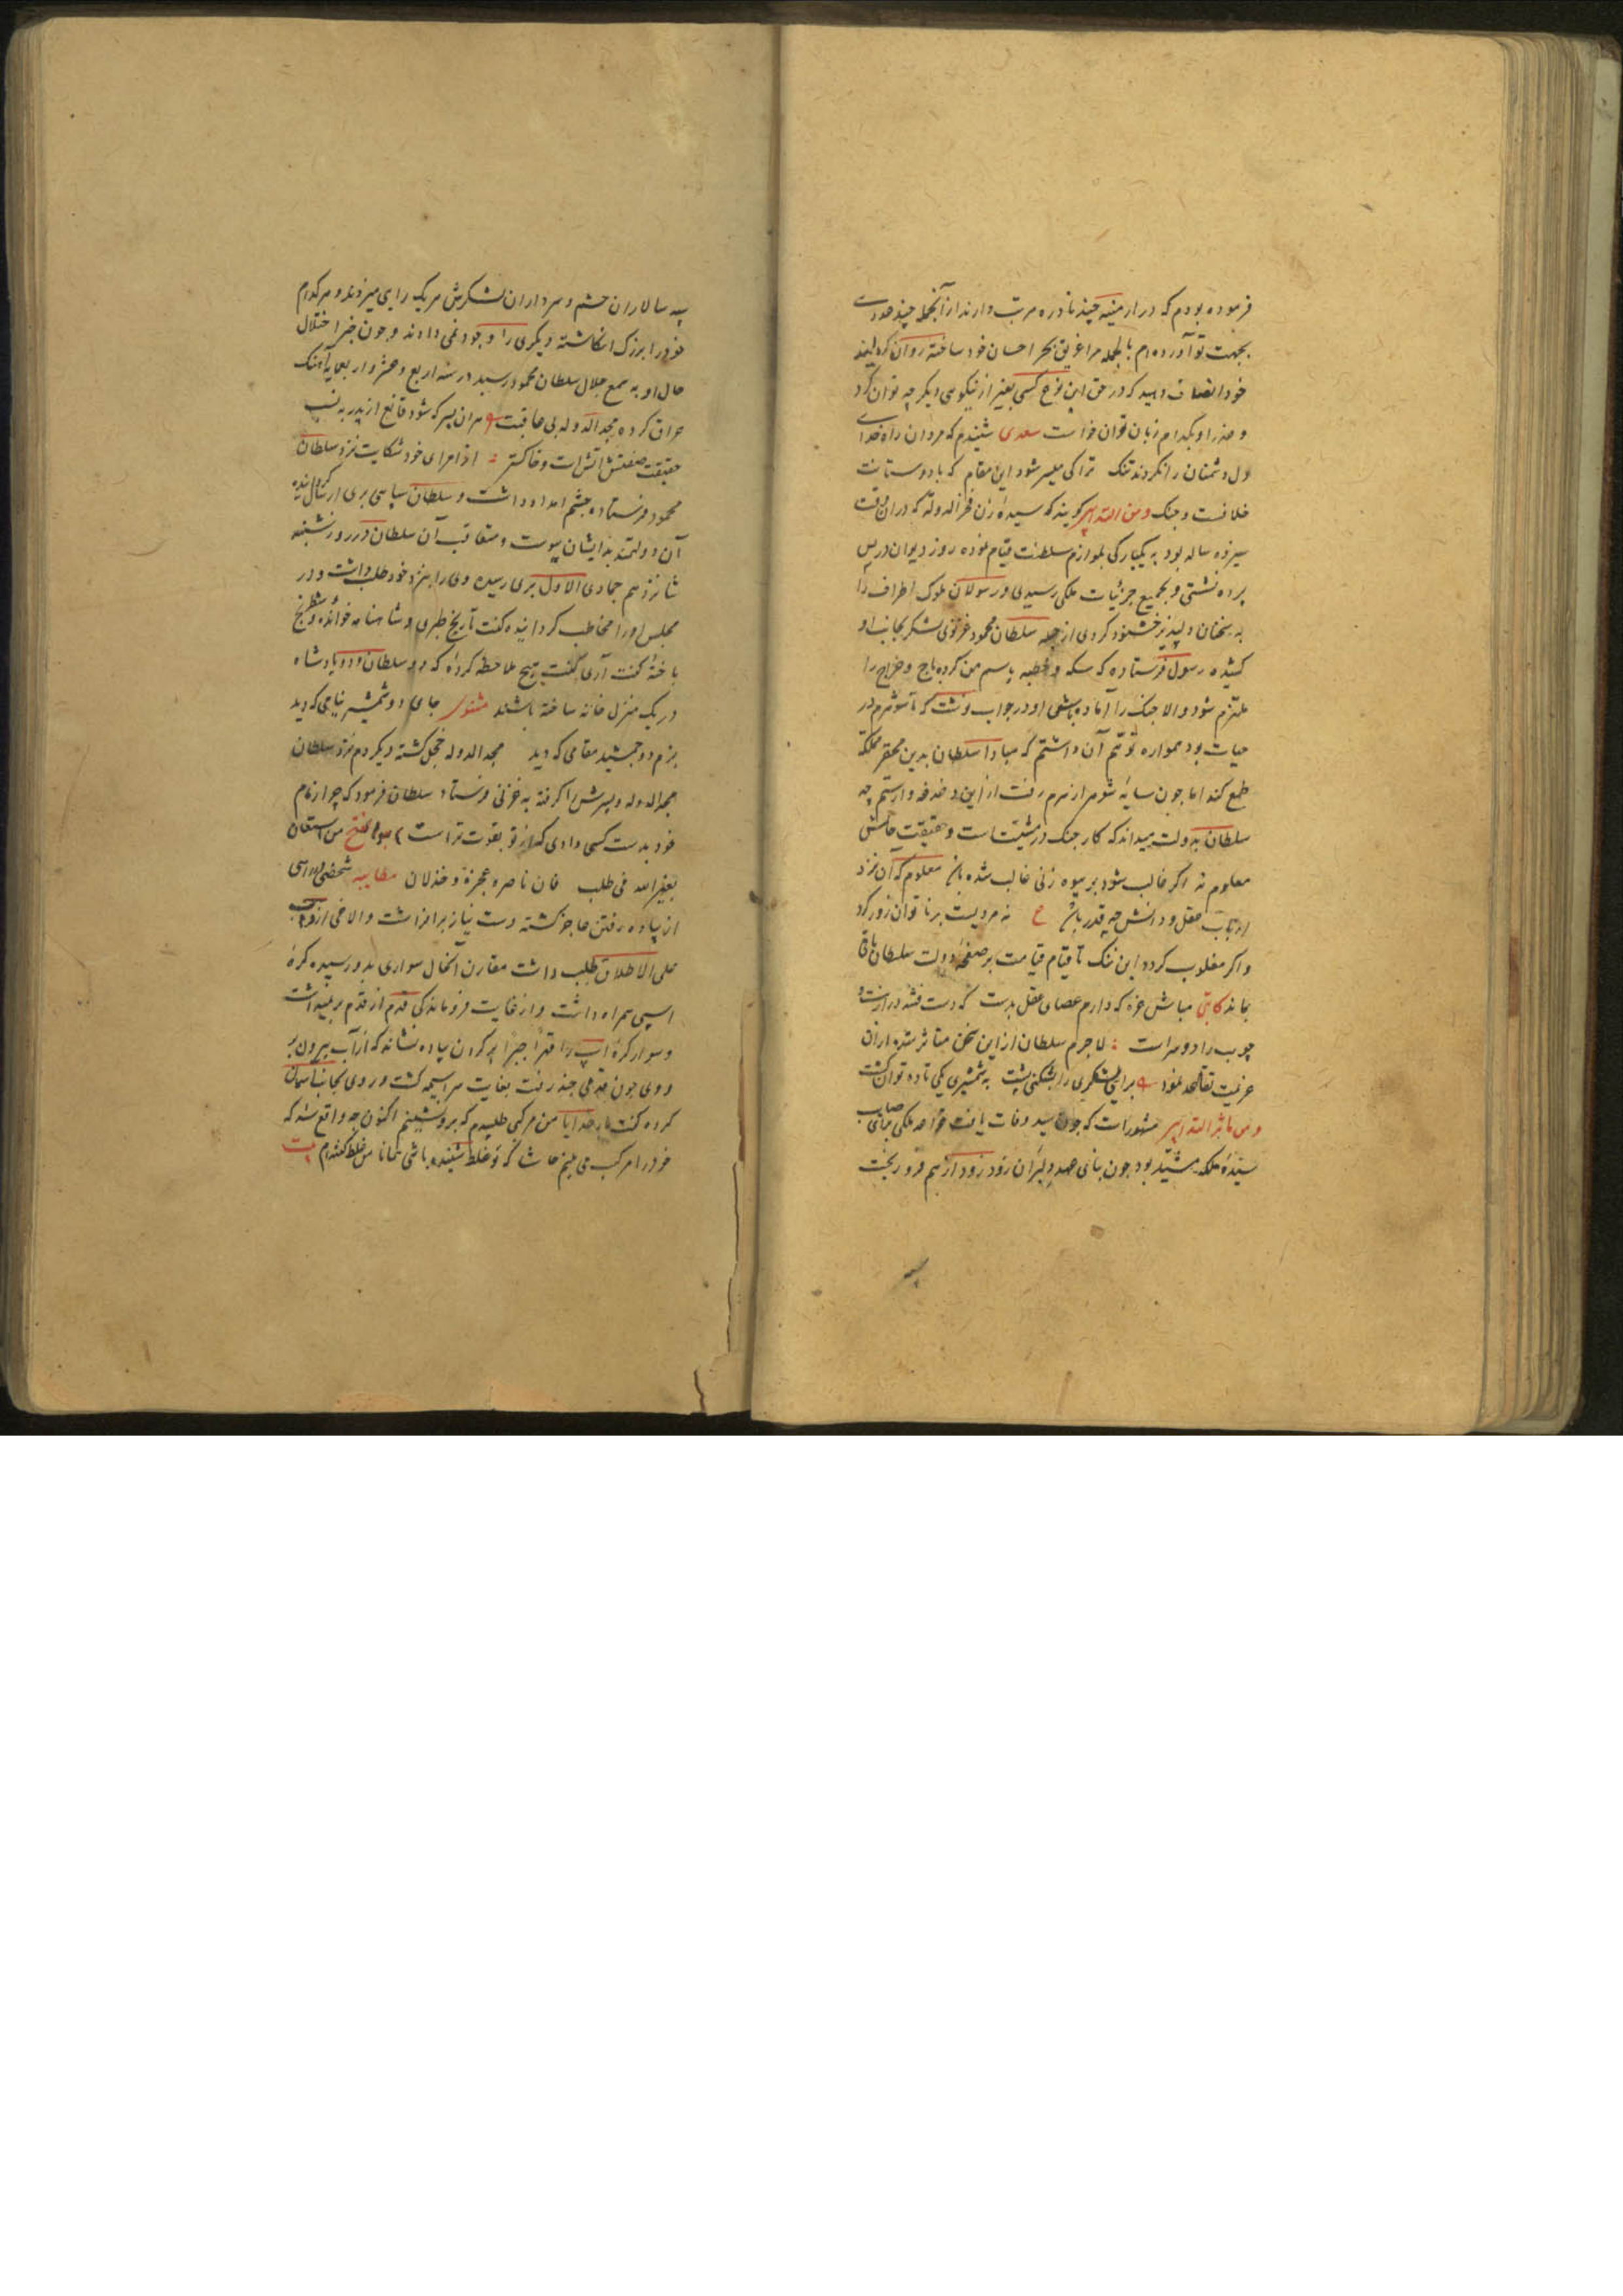 فرموده بودم که در ارمینیه چند نادره مرتب دارند از آنجمله چند عدد
بجهت تو آورده‌ام بالجمله مرا غریق بحر احسان خود ساخته روان
خود انصاف دهید که در حق این نوع کسی بغیر از نیکویی دیگر چه توان کرد
و عذر او بکدام زبان توان خواست سعدی شنیدم که مردان راه خدای
دل دشمنان را نکردند تنک ترا کی میسر شود این مقام که با دوستانت
خلافست و جنک کویند که سیده زن فخرالدوله که در آن وقت
سیزده ساله بود به یکبارکی بلوازم سلطنت قیام نموده روز دیوان در پس
پرده نشستی و بجمیع جزئیات ملکی رسیدی و رسولان ملوک اطراف را
به سخنان دلپذیر خشنود کردی از جمله سلطان محمود غزنوی لشکر بجانب او
کشیده رسول فرستاده که سکه و خطبه باسم من کرده باج و خراج را
ملتزم شود والا جنک را آماده باشی او در جواب نوشت که تا شوهرم در
حیات بود همواره توهم آن داشتم که مبادا سلطان بدین محقر مملکه
طمع کند اما چون سایه شوهر از سرم رفت از این دغدغه وارستم چه
سلطان به دولت میداند که کار جنک در مشیتست و حقیقت حالش
معلوم نه اگر غالب شود بر بیوه زنی غالب شده باشد معلوم که آن نزد
ارباب عقل و دانش چه قدر باشد ع نه مردیست بر ناتوان زور کرد
و اکر مغلوب کردد این ننک تا قیام قیامت بر صفحه دولت سلطان باقی
بماند کاتبی مباش غره که دارم عصای عقل بدست که دست فتنه درازست و
چوب را دو سر است لاجرم سلطان از این سخن متاثر شده از آن
عزیمت تقاعد نمود برایی لشکری را بشکنی پشت به شمشیری یکی تا ده توان کشت
مشهور است که چون سیده وفات یافت
سیده ملکه مشید بود چون بنای عهد دلبران زود زود از هم فرو ریخت
سپه سالاران حشم و سرداران لشکرش هر یک رایی میزدند و هرکدام
خود را بزرک انکاشته دیکری را وجود نمی دادند و چون خبر اختلال
حال او به سمع جلال سلطان محمود رسید در سنه اربع و عشر و اربعمایه آهنک
عراق کرده مجدالدوله بی عاقبت هر آن پسر که شود قانع از پدر به نسب
حقیقت صفتش آتش است و خاکستر از امرای خود شکایت نزد سلطان
محمود فرستاده چشم امداد داشت و سلطان سپاسی بری ارسال
آن دولتمند بدایشان پیوست و متعاقب آن سلطان در روز شنبه
شانزدهم جمادی الاول بری رسیده وی را بنزد خود طلب داشت و در
مجلس او را مخاطب کردانیده کفت تاریخ طبری و شاهنامه خوانده و شطرنج
باخته کفت آری کفت هیچ ملاحظه کرده که دو سلطان و دو پادشاه
در یک منزل خانه ساخته باشند مثنوی جای دو شمشیر نیامی که دید
بزم دو جمشید مقامی که دید مجدالدوله خجل کشته دیکر دم نزد سلطان
مجدالدوله و پسرش را کرفته به غزنی فرستاد سلطان فرمود که چرا زمام
خود بدست کسی دادی که از تو بقوت تر است من استعان
بغیر الله فی طلب فان ناصره عجزه و خذلان مطایبه شخصی در راهی
از پیاده رفتن عاجز کشته دست نیاز برافراشت و الاغی از واهب
علی الاطلاق طلب داشت مقارن آنحال سواری بدو رسیده کره
اسپی همراه داشت و از غایت فروماندکی قدم از قدم بر نمیداشت
و سوار کره اسپ را قهرا جبرا بر کردن پیاده نشاند که از آب بیرون بر
و وی چون قدمی چند رفت بغایت سراسیمه کشت و روی بجانب آسمان
کرده کفت بار خدایا من مرکبی طلبیدم که برو نشینم اکنون چه واقع شد که
خود را مرکب می بینم حاشا که تو غلط شنیده باشی همانا من غلط کفته‌ام بیت